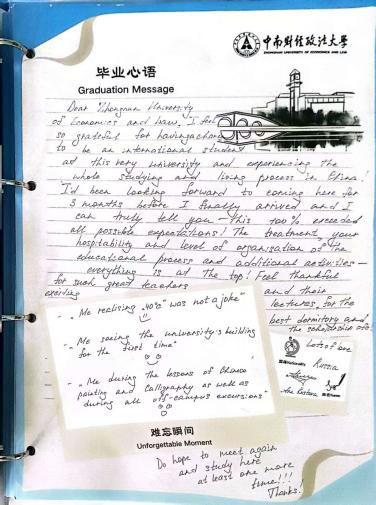 中南财经政法大学
ZHONGNAN UNIVERSITY OF ECONOMICS AND LAW
毕业心语
Graduation Message
Dear Zhongnan University
of Economics and Law, I feel
so grateful for having a chance
to be an international student
at this very university and experiencing the
whole studying and living process in China!
I'd been looking forward to coming here for
3 months before I finally arrived and I
can truly tell you - this 100% exceeded
all possible expectations! The treatment, your
hospitability and level of organisation of the
educational process and additional activities -
everything is at the top! Feel thankful
for such great teachers and their
exciting lectures, for the
best dormitory and
the scholarship
- "Me realising "40°C" was not a joke"
- "Me seeing the university's building
for the first time"
- "Me during the lessons of Chinese
painting and Calligraphy as well as
during all off-campus excursions"
Lots of love
Nationality Russia
Name
难忘瞬间
Unforgettable Moment
Do hope to meet again
and study here
at least one more
time!!!
Thanks!